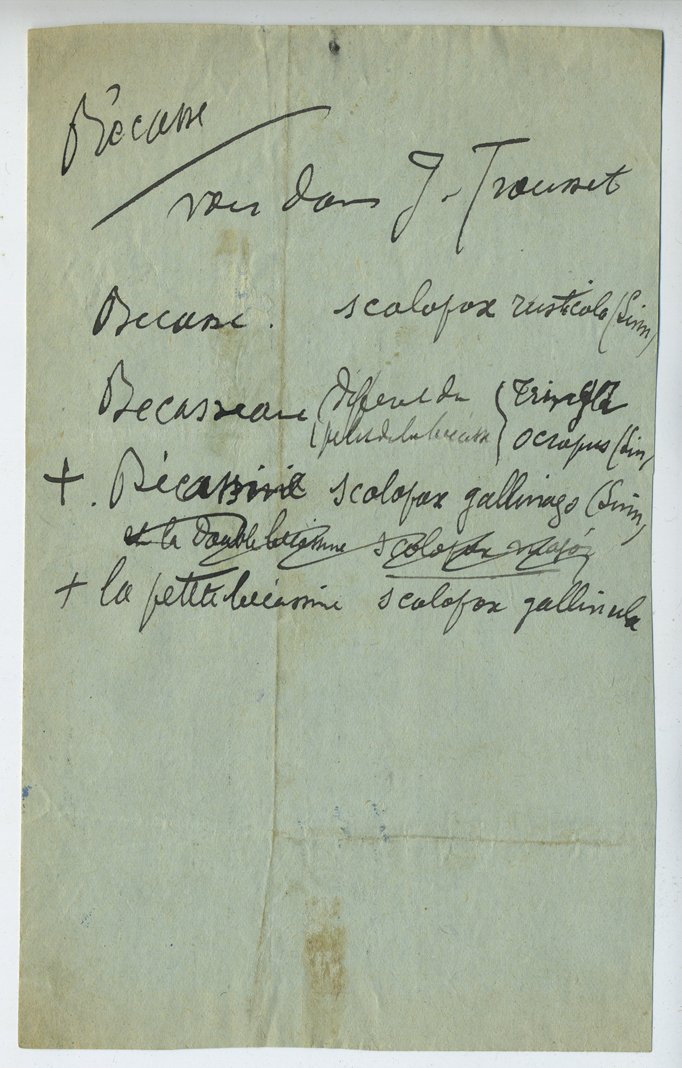 Bécasse
voir dans J. Trousset
Becasse. scolopax rusticola (Linn)
Becasseau (différent du tringa
(petit de la bécasse ocropus (Lin)
+. Bécassine scolopax gallinago (Linn)
et la double bécassine scolopax major
+ la petite bécassine scolopax gallinula